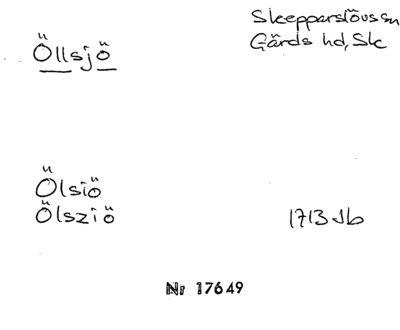 Öllsjö
Skepparslövs sn
Gärds hd, Sk
Ölsiö
Ölsziö
1713 Jb
Nr 17649